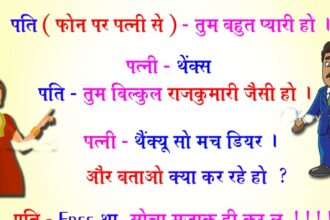 पति ( फोन पर पत्नी से ) - तुम बहुत प्यारी हो ।
पत्नी - थेंक्स
पति - तुम बिल्कुल राजकुमारी जैसी हो ।
पत्नी - थैंक्यू सो मच डियर ।
और बताओ क्या कर रहे हो ?
पति - Free था, सोचा मजाक ही कर लूं !!!